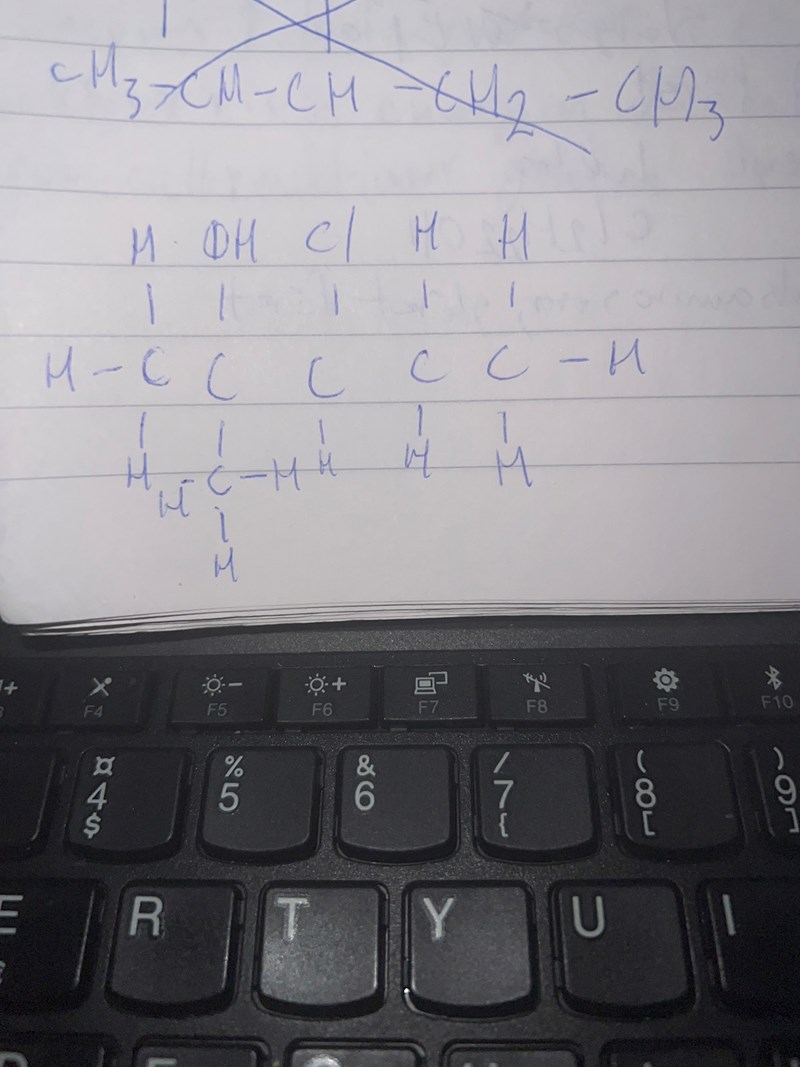 CH3-CH-CH-CH2-CH3
H OH Cl H H
| | | | |
H-C C C C C-H
| | | | |
H H-C-H H H H
|
H
F4 F5 F6 F7 F8 F9 F10
¤ % & / ( )
4 5 6 7 8 9
$ { [ ]
E R T Y U I